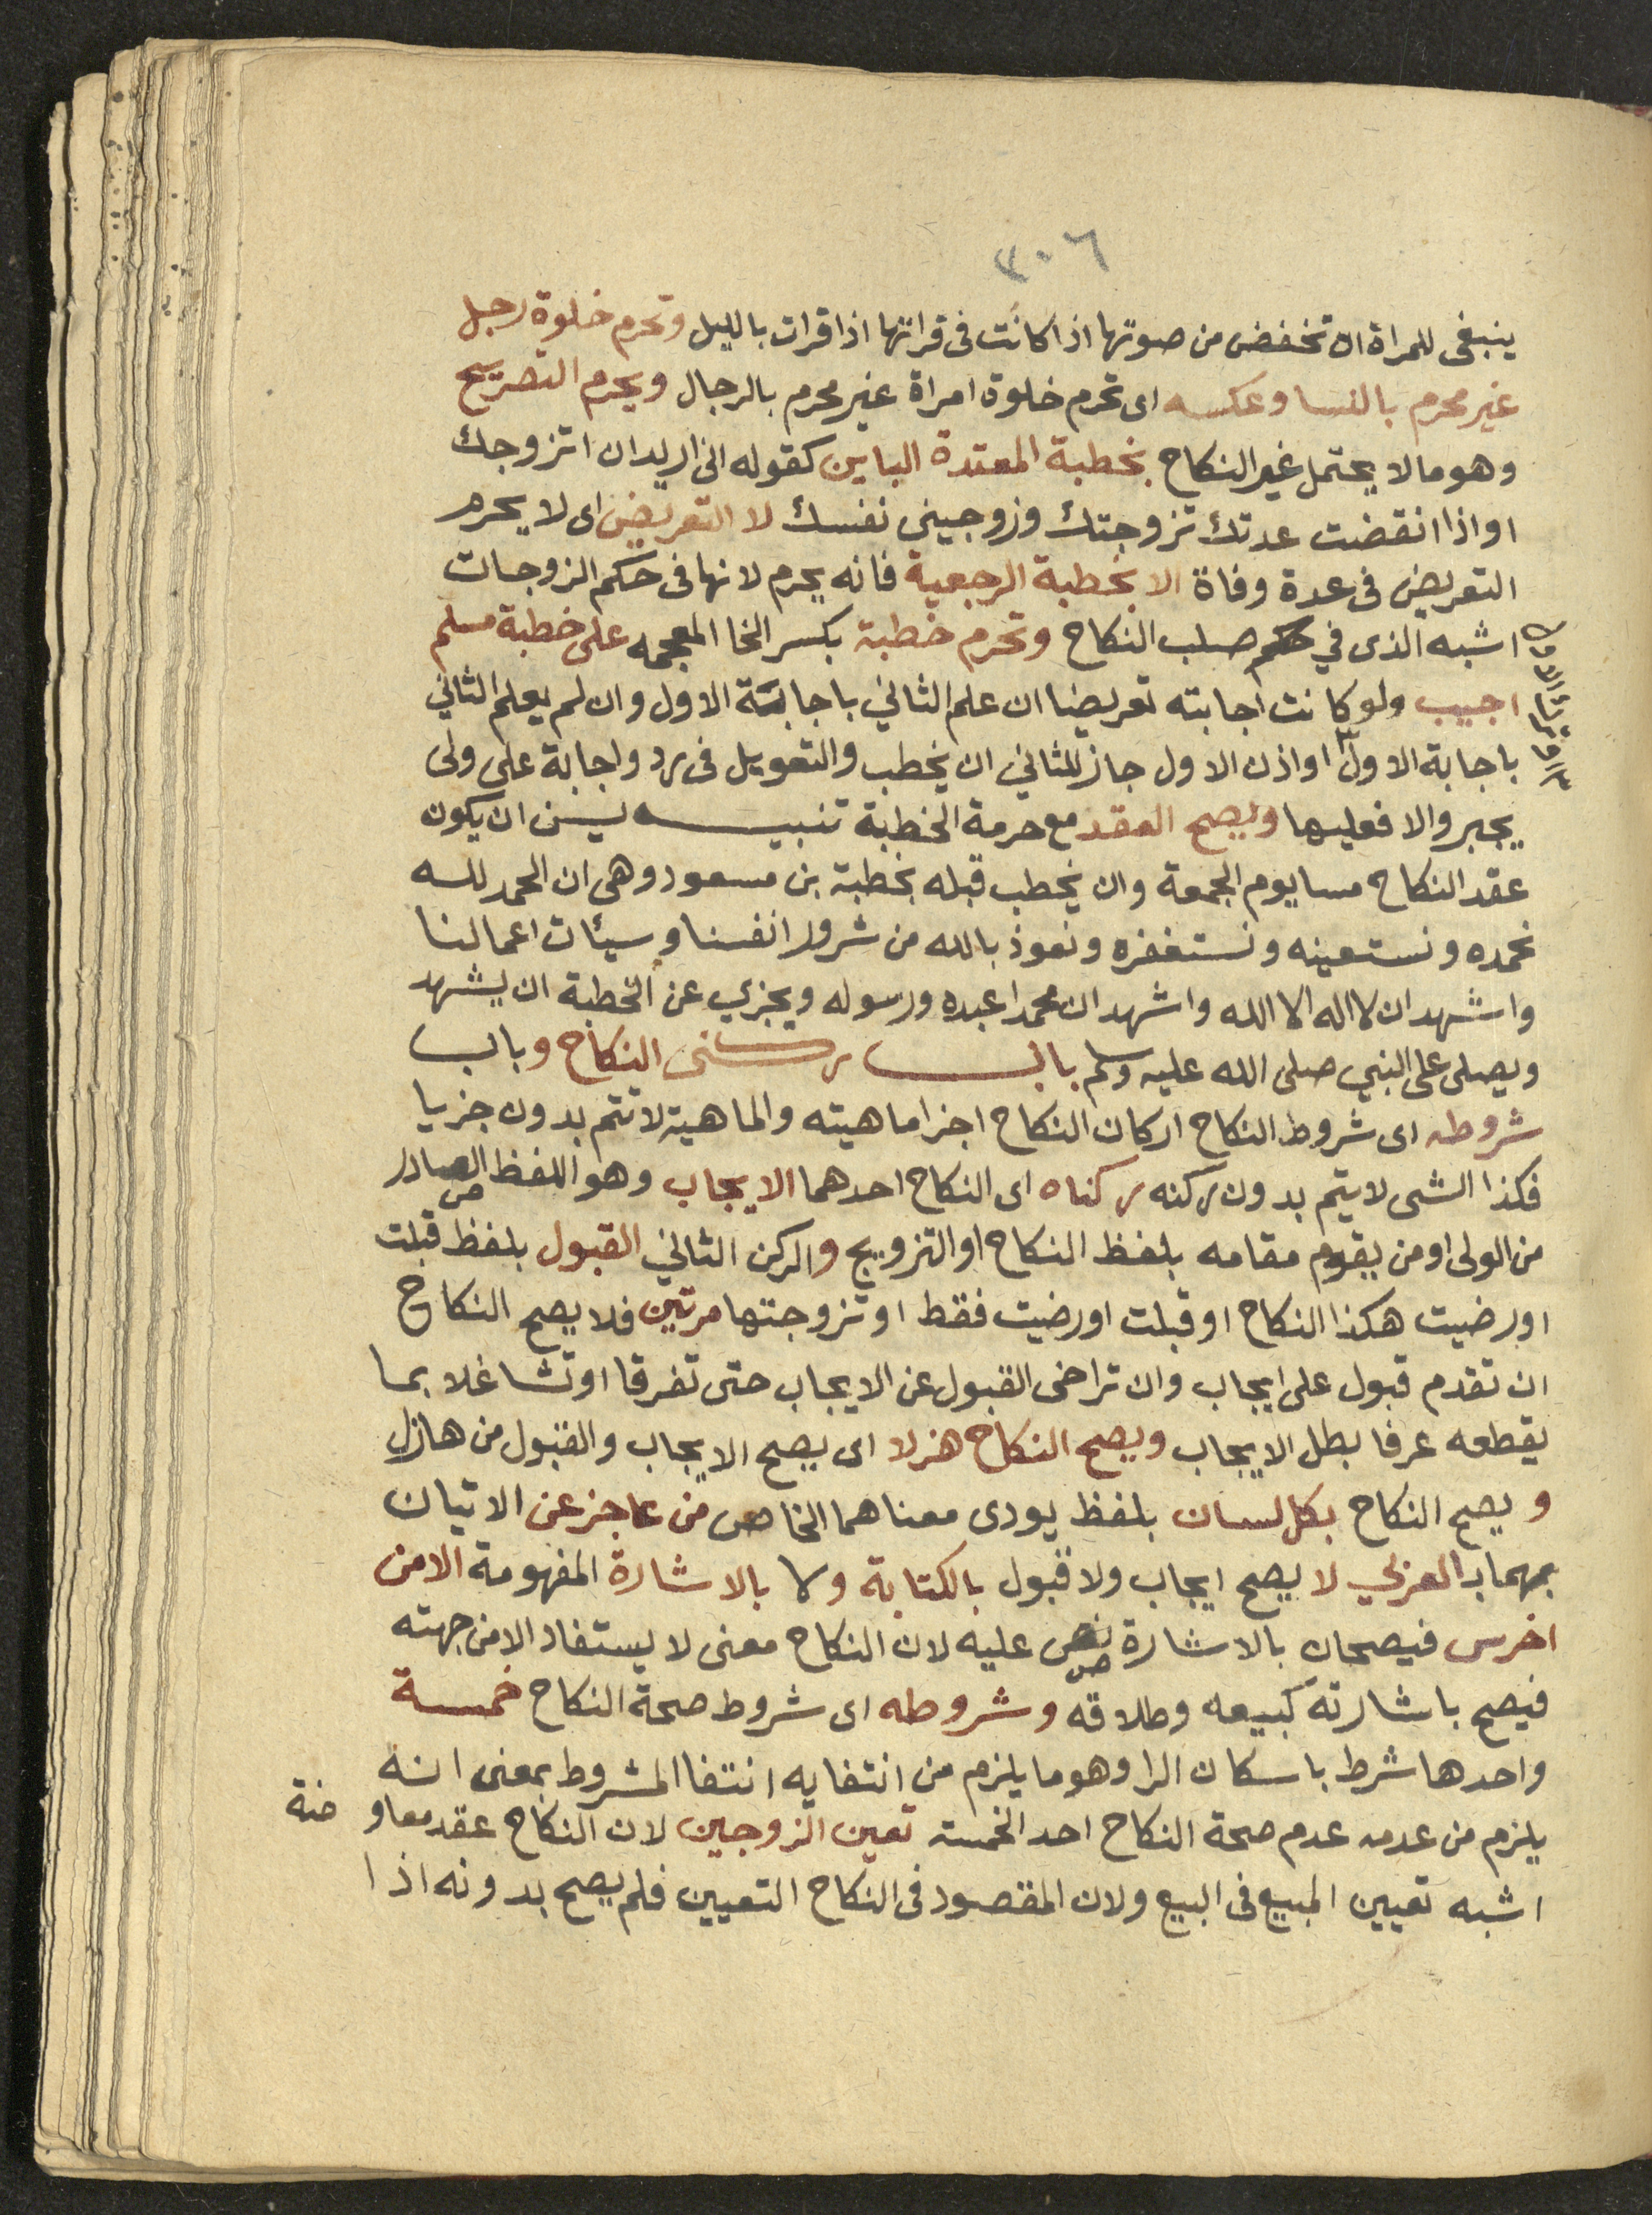 ٣٠٦
ينبغى للمراة ان تخفض من صوتها اذا كانت فى قراتها اذا قرات بالليل وتحرم خلوة رجل
غير محرم بالنسا وعكسه اى تحرم خلوة امراة غير محرم بالرجال ويحرم التصريح
وهو ما لا يحتمل غير النكاح بخطبة المعتدة الباين كقوله انى اريد ان اتزوجك
او اذا انقضت عدتك تزوجتك وزوجينى نفسك لا التعريض اى لا يحرم
التعريض فى عدة وفاة الا بخطبة الرجعية فانه يحرم لانها فى حكم الزوجات
اشبه الذى في حكم صلب النكاح وتحرم خطبة بكسر الخا المعجمه على خطبة مسلم
اجيب ولو كانت اجابته تعريضا ان علم الثاني باجابة الاول وان لم يعلم الثاني
باجابة الاول او اذن الاول جاز للثاني ان يخطب والتعويل فى رد واجابة على ولى
يجبر والا فعليها ويصح العقد مع حرمة الخطبة تنبيه يسن ان يكون
عقد النكاح مسا يوم الجمعة وان يخطب قبله بخطبة بن مسعود وهى ان الحمد لله
نحمده ونستعينه ونستغفره ونعوذ بالله من شرور انفسنا وسيئات اعمالنا
واشهد ان لا اله الا الله واشهد ان محمدا عبده ورسوله ويجزي عن الخطبة ان يشهد
ويصلى على النبي صلى الله عليه وسلم باب ركنى النكاح وباب
شروطه اى شروط النكاح اركان النكاح اجزا ماهيته والماهية لا تتم بدون جزيا
فكذا الشى لا يتم بدون ركنه ركناه اى النكاح احدهما الايجاب وهو اللفظ الصادر
من الولى او من يقوم مقامه بلفظ النكاح او التزويج والركن الثاني القبول بلفظ قبلت
او رضيت هكذا النكاح او قبلت او رضيت فقط او تزوجتها مرتين فلا يصح النكاح
ان تقدم قبول على ايجاب وان تراخى القبول عن الايجاب حتى تفرقا او تشاغلا بما
يقطعه عرفا بطل الايجاب ويصح النكاح هزلا اى يصح الايجاب والقبول من هازل
ويصح النكاح بكل لسان بلفظ يودى معناهما الخاص من عاجز عن الاتيان
بهما بالعربي لا يصح ايجاب ولا قبول بالكتابة ولا بالاشارة المفهومة الا من
اخرس فيصحان بالاشارة نص عليه لان النكاح معنى لا يستفاد الا من جهته
فيصح باشارته كبيعه وطلاقه وشروطه اى شروط صحة النكاح خمسة
واحدها شرط باسكان الرا وهو ما يلزم من انتفايه انتفا المشروط بمعنى انه
يلزم من عدمه عدم صحة النكاح احد الخمسة تعين الزوجين لان النكاح عقد معاوضة
اشبه تعيين المبيع فى البيع ولان المقصود فى النكاح التعيين فلم يصح بدونه اذا